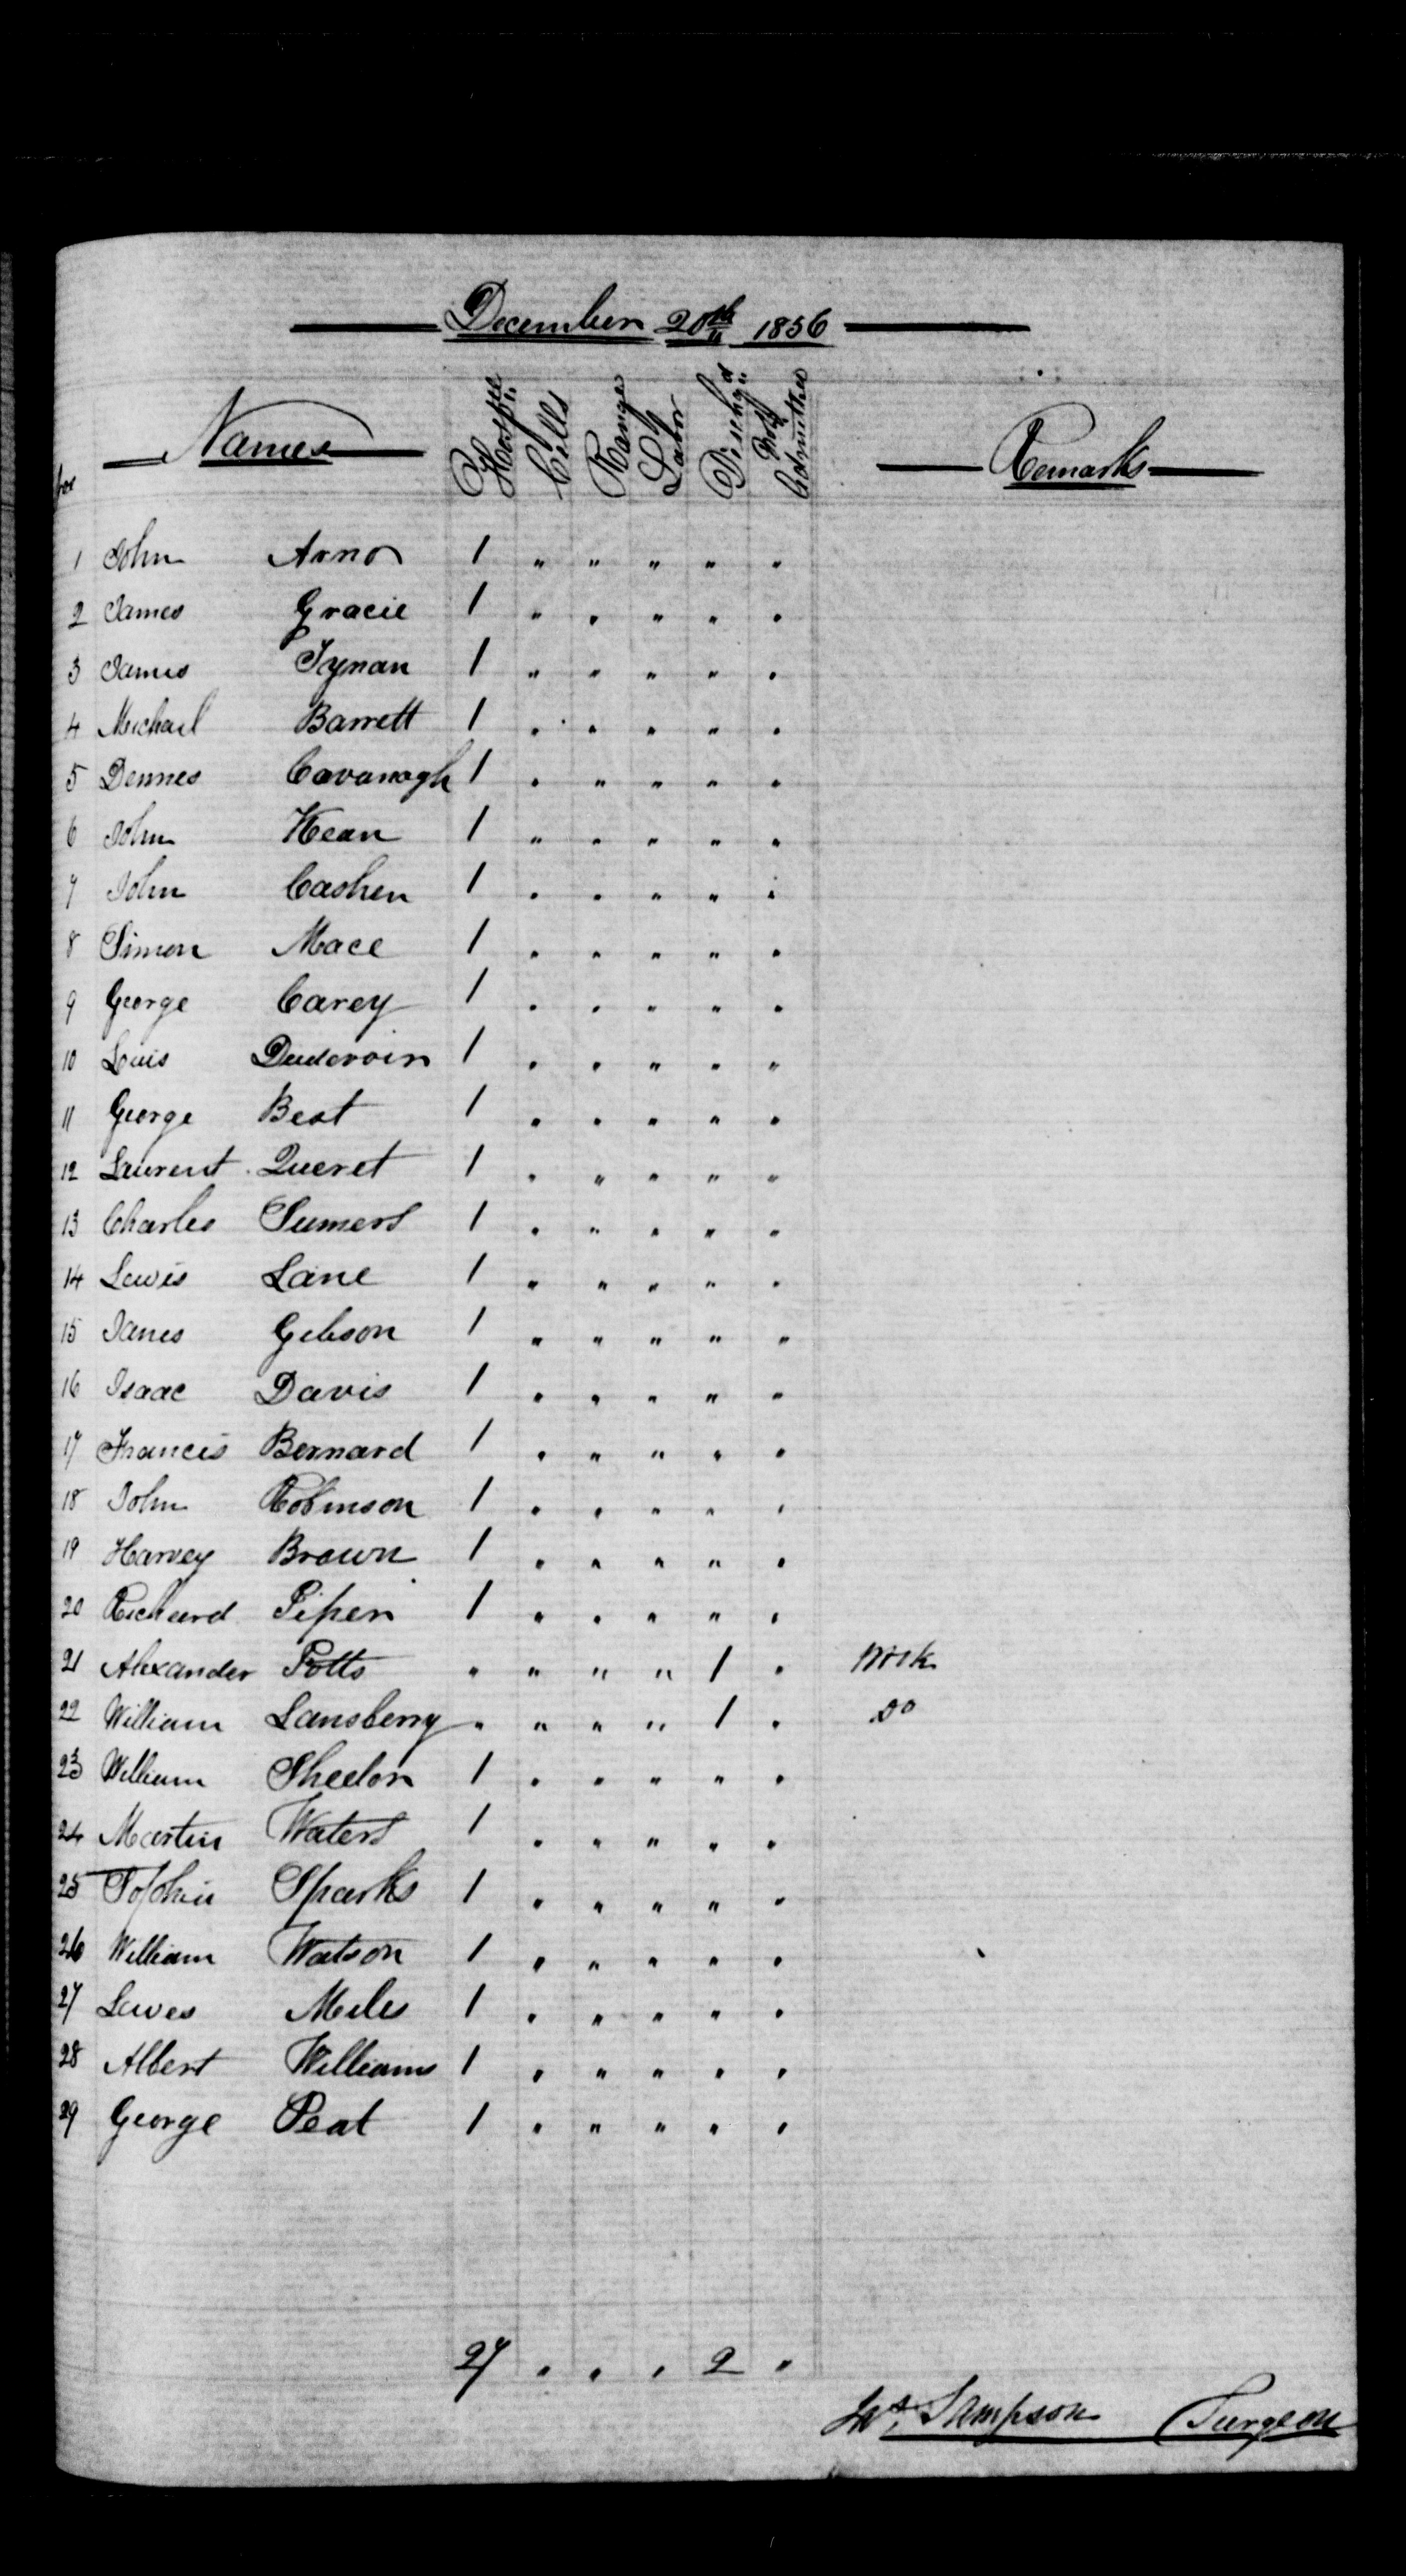 December 20th 1856
No Names Hospl Cells Range Labor Dischgd Not Admitted Remarks
1 John Arno 1 " " " " "
2 James Gracie 1 " " " " "
3 James Tynan 1 " " " " "
4 Michael Barrett 1 " " " " "
5 Dennes Cavanagh 1 " " " " "
6 John Kean 1 " " " " "
7 John Cashen 1 " " " " "
8 Simon Mace 1 " " " " "
9 George Carey 1 " " " " "
10 Louis Dudevoin 1 " " " " "
11 George Beat 1 " " " " "
12 Laurent Queret 1 " " " " "
13 Charles Sumers 1 " " " " "
14 Lewis Lane 1 " " " " "
15 James Gibson 1 " " " " "
16 Isaac Davis 1 " " " " "
17 Francis Bernard 1 " " " " "
18 John Robinson 1 " " " " "
19 Harvey Brown 1 " " " " "
20 Richard Piper 1 " " " " "
21 Alexander Potts " " " " 1 " Work
22 William Lansberry " " " " 1 " Do
23 William Sheldon 1 " " " " "
24 Martin Waters 1 " " " " "
25 Sparks 1 " " " " "
26 William Watson 1 " " " " "
27 Lewes Miles 1 " " " " "
28 Albert Williams 1 " " " " "
29 George Peat 1 " " " " "
27 " " " 2 "
Jas Sampson Surgeon